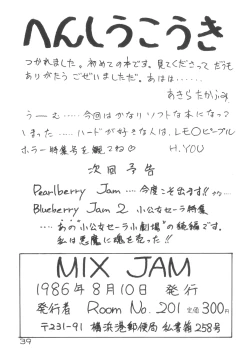 へんしうこうき
つかれました。初めての本です。見てくださって どうも
ありがとう ございましただ。あはは……
あきら たかふみ
うーむ……今回は かなり ソフトな 本に なって
しまった……ハードが 好きな人は、LEOピープル
ホラー特集号を観てね♡ H.YOU
次回予告
Pearlberry Jam……今度こそ出ます!!
Blueberry Jam 2 小公女セーラ特集
……あの"小公女セーラ小劇場"の続編です。
私は悪魔に魂を売った!!
MIX JAM
1986年8月10日 発行
発行者 Room No. 201 定価300円
〒231-91 横浜港郵便局 私書箱258号
39